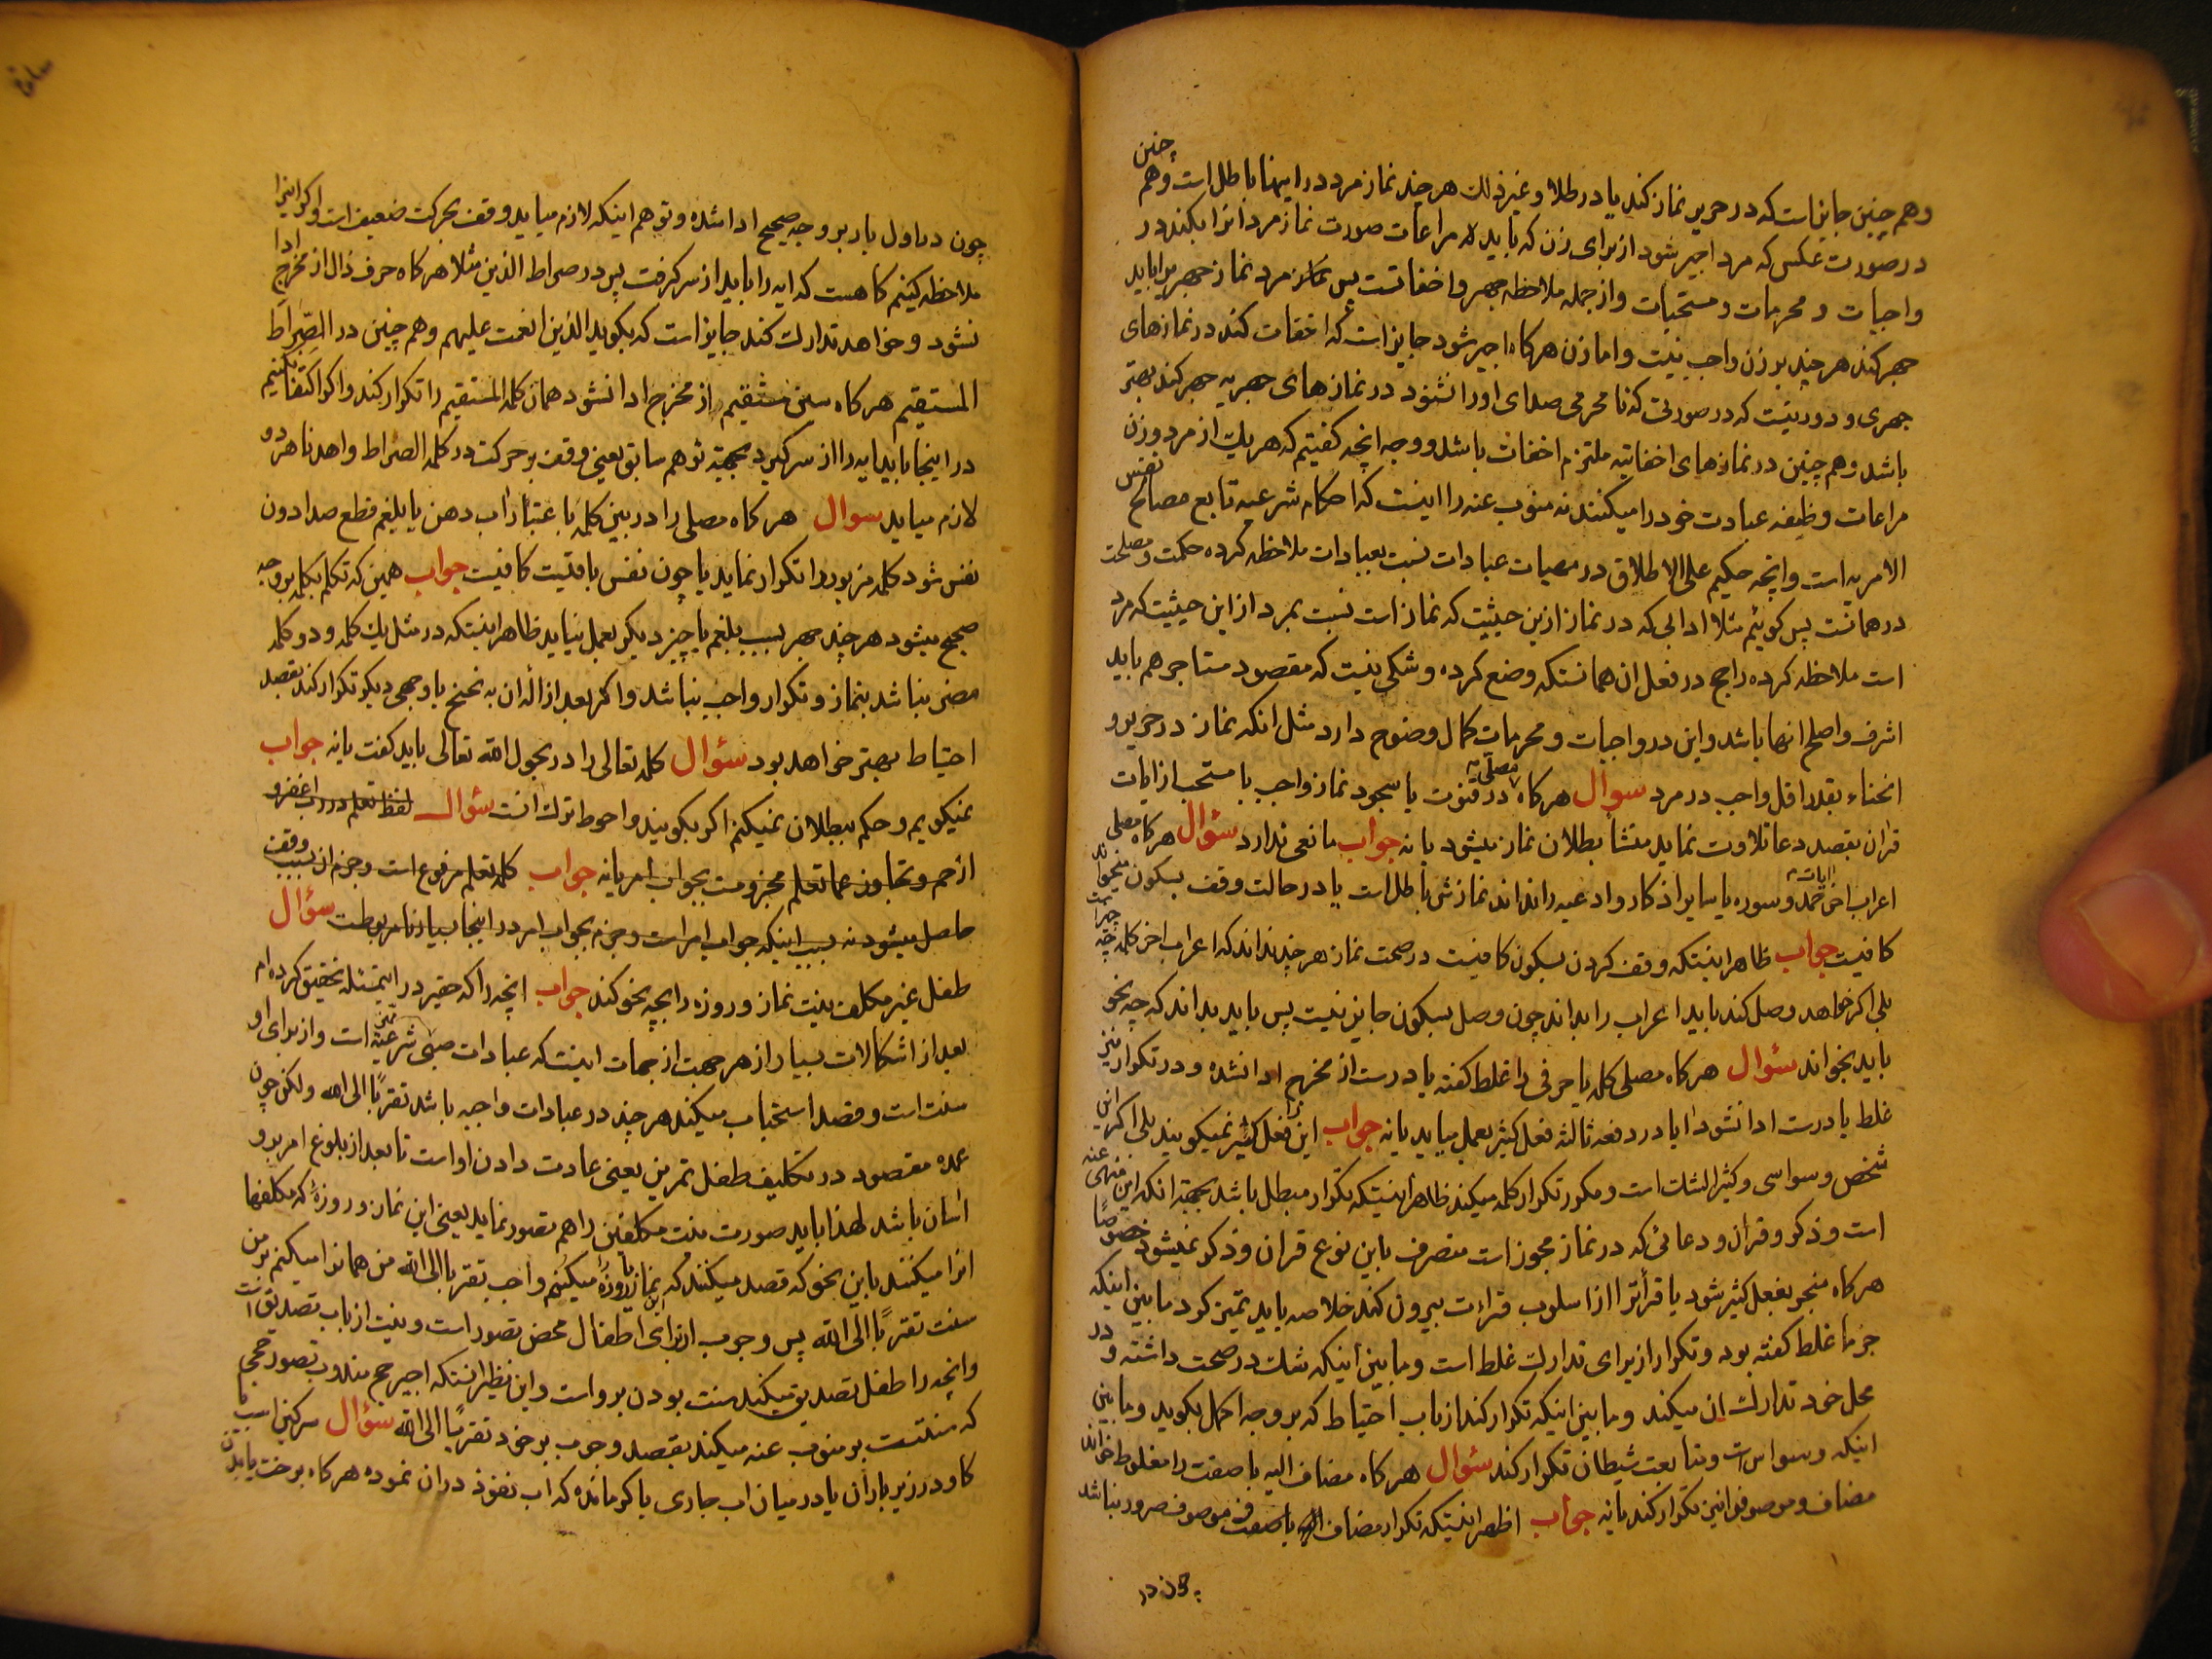 وهم چنین جایز است که در حریر نماز کند یا در طلا و غیر ذلک هر چند نماز مرد در اینها باطل است و هم چنین
در صورت عکس که مرد اجیر شود از برای زن که باید مراعات صورت نماز مرد انرا بکند در
واجبات و محرمات و مستحبات و از جمله ملاحظه جهر و اخفاتست پس مرد نماز جهریرا باید
جهر کند هر چند بر زن واجب نیست و اما زن هرکاه اجیر شود جایز است که اخفات کند در نمازهای
جهری و دور نیست که در صورتی که نا محرمی صدای او را نشنود در نمازهای جهریه جهر کند بهتر
باشد و هم چنین در نمازهای اخفاتیه ملتزم اخفات باشد و وجه انچه کفتیم که هر یک از مرد و زن
مراعات وظیفه عبادت خود را میکنند نه منوب عنه را اینست که احکام شرعیه تابع مصالح نفس
الامریه است و انچه حکیم علی الاطلاق در مهیات عبادات نسبت بعبادات ملاحظه کرده حکمت و مصلحت
در همانست پس کوئیم مثلا ادابی که در نماز ازین حیثیت که نماز است نسبت بمرد از این حیثیت که مرد
است ملاحظه کرده راجح در فعل ان همانستکه وضع کرده و شکی نیست که مقصود مستاجر هم باید
اشرف و اصلح انها باشد و این در واجبات و محرمات کمال وضوح دارد مثل انکه نماز در حریر و
انحناء بقدر اقل واجب در مرد سوال هرکاه مصلی در قنوت یا سجود نماز واجب یا مستحب از ایات
قران بقصد دعا تلاوت نماید منشأ بطلان نماز میشود یا نه جواب مانعی ندارد سؤال هرکاه مصلی
اعراب اخر ایات حمد و سوره یا سایر اذکار و ادعیه را نداند نمازش باطل است یا در حالت وقف بسکون بخواند
کافیست جواب ظاهر اینستکه وقف کردن بسکون کافیست در صحت نماز هر چند نداند که اعراب اخر کلمه چه چیز است
بلی اکر خواهد وصل کند باید اعراب را بداند چون وصل بسکون جایز نیست پس باید بداند که چه نحو
باید بخواند سؤال هرکاه مصلی کلمه یا حرفی را غلط کفته یا درست از مخرج ادا نشده و در تکرار نیز
غلط یا درست ادا نشود ایا در دفعه ثالثه فعل کثیر بعمل میاید یا نه جواب این را فعل کثیر نمیکویند بلی اکر این
شخص وسواسی و کثیر الشک است و مکرر تکرار کلمه میکند ظاهر اینستکه تکرار مبطل باشد بجهة انکه این منهی عنه
است و ذکر و قرآن و دعائی که در نماز مجوز است منصرف باین نوع قران و ذکر نمیشود خصوصا
هرکاه منجر بفعل کثیر شود یا قرأت را از اسلوب قراءت بیرون کند خلاصه باید تمیز کرد ما بین اینکه
جزما غلط کفته بود و تکرار از برای تدارک غلط است و ما بین اینکه شک در صحت داشته و در
محل خود تدارک ان میکند و ما بین اینکه تکرار کند از باب احتیاط که بر وجه اکمل بکوید و ما بین
اینکه وسواس است و متابعت شیطان تکرار کند سؤال هرکاه مضاف الیه یا صفت را مغلوط خواند
مضاف و موصوف را نیز تکرار کند یا نه جواب اظهر اینستکه تکرار مضاف یا موصوف ضرور نباشد
چون در
چون در اول بار بر وجه صحیح ادا شده و توهم اینکه لازم میاید وقف بحرکت ضعیف است و اکر اینرا
ملاحظه کنیم کاهست که ایه را باید از سر کرفت پس در صراط الذین مثلا هرکاه حرف ذال از مخرج ادا
نشود و خواهد تدارک کند جایز است که بکوید الذین انعمت علیهم و هم چنین در الصراط
المستقیم هرکاه سین مستقیم از مخرج ادا نشود همان کلمه المستقیم را تکرار کند و اکر اکتفا نکنیم
در اینجا باید ایه را از سر کیرد بجهة توهم سابق یعنی وقف بر حرکت در کلمه الصراط و اهدنا هر دو
لازم میاید سوال هرکاه مصلی را در بین کلمه باعتبار اب دهن یا بلغم قطع صدا دون
نفس شود کلمه مزبوره را تکرار نماید یا چون نفس باقیست کافیست جواب همین که تکلم بکلمه بر وجه
صحیح میشود هر چند جهر بسبب بلغم یا چیز دیکر بعمل نیاید ظاهر اینستکه در مثل یک کلمه و دو کلمه
مضر نباشد بنماز و تکرار واجب نباشد و اکر بعد از ازاله ان به تنحنح یا وجهی دیکر تکرار کند بقصد
احتیاط بهتر خواهد بود سؤال کلمه تعالی را در بحول الله تعالی باید کفت یا نه جواب
نمیکویم و حکم ببطلان نمیکنم اکر بکویند و احوط ترک انست سؤال لفظ تعلم در رب اغفر و
ارحم و تجاوز عما تعلم مجزومست بجواب امر یا نه جواب کلمه تعلم مرفوع است و جزم ان بسبب وقف
حاصل میشود نه بسبب اینکه جواب امر است و جزم بجواب امر در اینجا بسیار نامربوطست سؤال
طفل غیر مکلف نیت نماز و روزه را بچه نحو کند جواب انچه را که حقیر در این مسئله تحقیق کرده ام
بعد از اشکالات بسیار از هر جهت از جهات اینست که عبادات صبی شرعیه است و از برای او
سنت است و قصد استحباب میکند هر چند در عبادات واجبه باشد تقربا الی الله و لکن چون
عمده مقصود در تکلیف طفل تمرین یعنی عادت دادن او است تا بعد از بلوغ امر بر و
اسان باشد لهذا باید صورت نیت مکلفین را هم تصور نماید یعنی این نماز و روزه که مکلفها
انرا میکنند باین نحو که قصد میکنند که نماز یا روزه میکنم واجب تقربا الی الله من همانرا میکنم بر من
سنت تقربا الی الله پس وجوب از برای اطفال محض تصور است و نیت از باب تصدیق است
و انچه را طفل تصدیق میکند سنت بودن بر و است و این نظیر انستکه اجیر حج مندوب تصور حجی
که سنتست بر منوب عنه میکند بقصد وجوب بر خود تقربا الی الله سؤال سرکین اسب یا
کاو در زیر باران یا در میان اب جاری یا کر مانده که اب نفوذ در ان نموده هرکاه برخت یا بدن